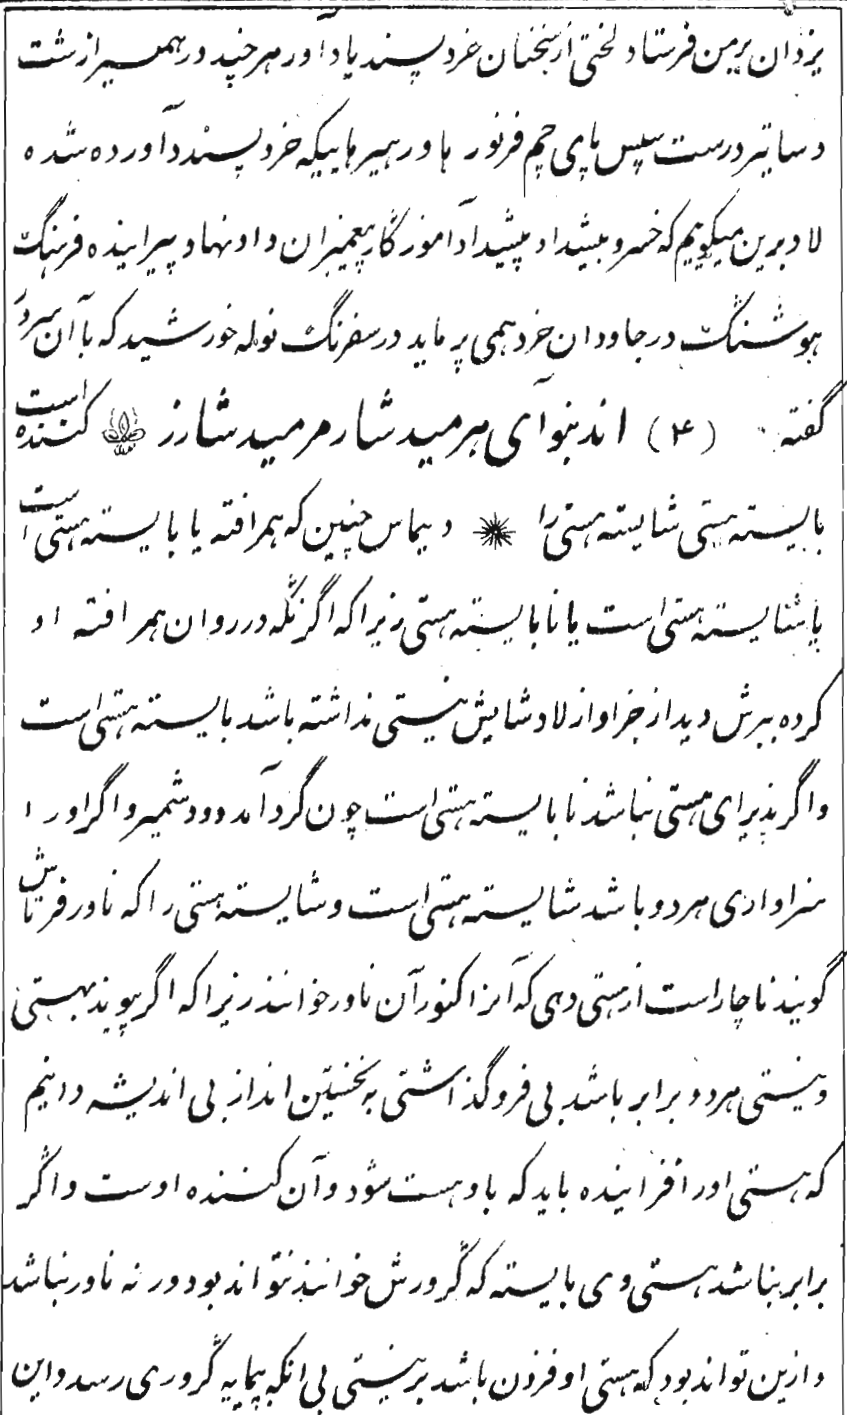 یزدان بر من فرستاد لختی از سخنان خرد پسند یاد آور هر چند در همیراز شت
دساتیر درست سپس پای چم فرنور ها و رهبرهاییکه خرد پسندد آورده شده
لاد برین میگوییم که خسرو بیشداد پیشداد آموزگار پیغمبران داد نهاد پیراینده فرهنگ
هوشنگ در جاودان خرد همی پر ماید در سفرنگ نوله خورشید که باآن سپرد
گفته (۴) اند بنوآی هرمید شار مرمید شارز کننده است
بایسته هستی شایسته هستی را ✷ دیماس چنین که همرافته یا بایسته هستی است
یا شایسته هستی است یا نابایسته هستی زیرا که اگر نگه در روان همرافته او
کرده ببرش دید از جز او از لاد شایش نیستی نداشته باشد بایسته هستی است
واگر پذیرای هستی نباشد نابایسته هستی است چون گرد آمد دو دشمیر واگر اورا
سزاواری هر دو باشد شایسته هستی است و شایسته هستی را که ناور فرتاش
گویند ناچار است از هستی دهی که آنرا کنور آن ناور خوانند زیرا که اگر پیوند بهستی
و نیستی هر دو برابر باشد بی فروگذاشتی به نخستین انداز بی اندیشه دانیم
که هستی اورا فزاینده باید که باو هست شود و آن کننده اوست و اگر
برابر نباشد هستی وی بایسته که گرورش خوانند نتواند بود ورنه ناور نباشد
و ازین تواند بود که هستی او فزون باشد بر نیستی بی آنکه بپایه گروری رسد و این